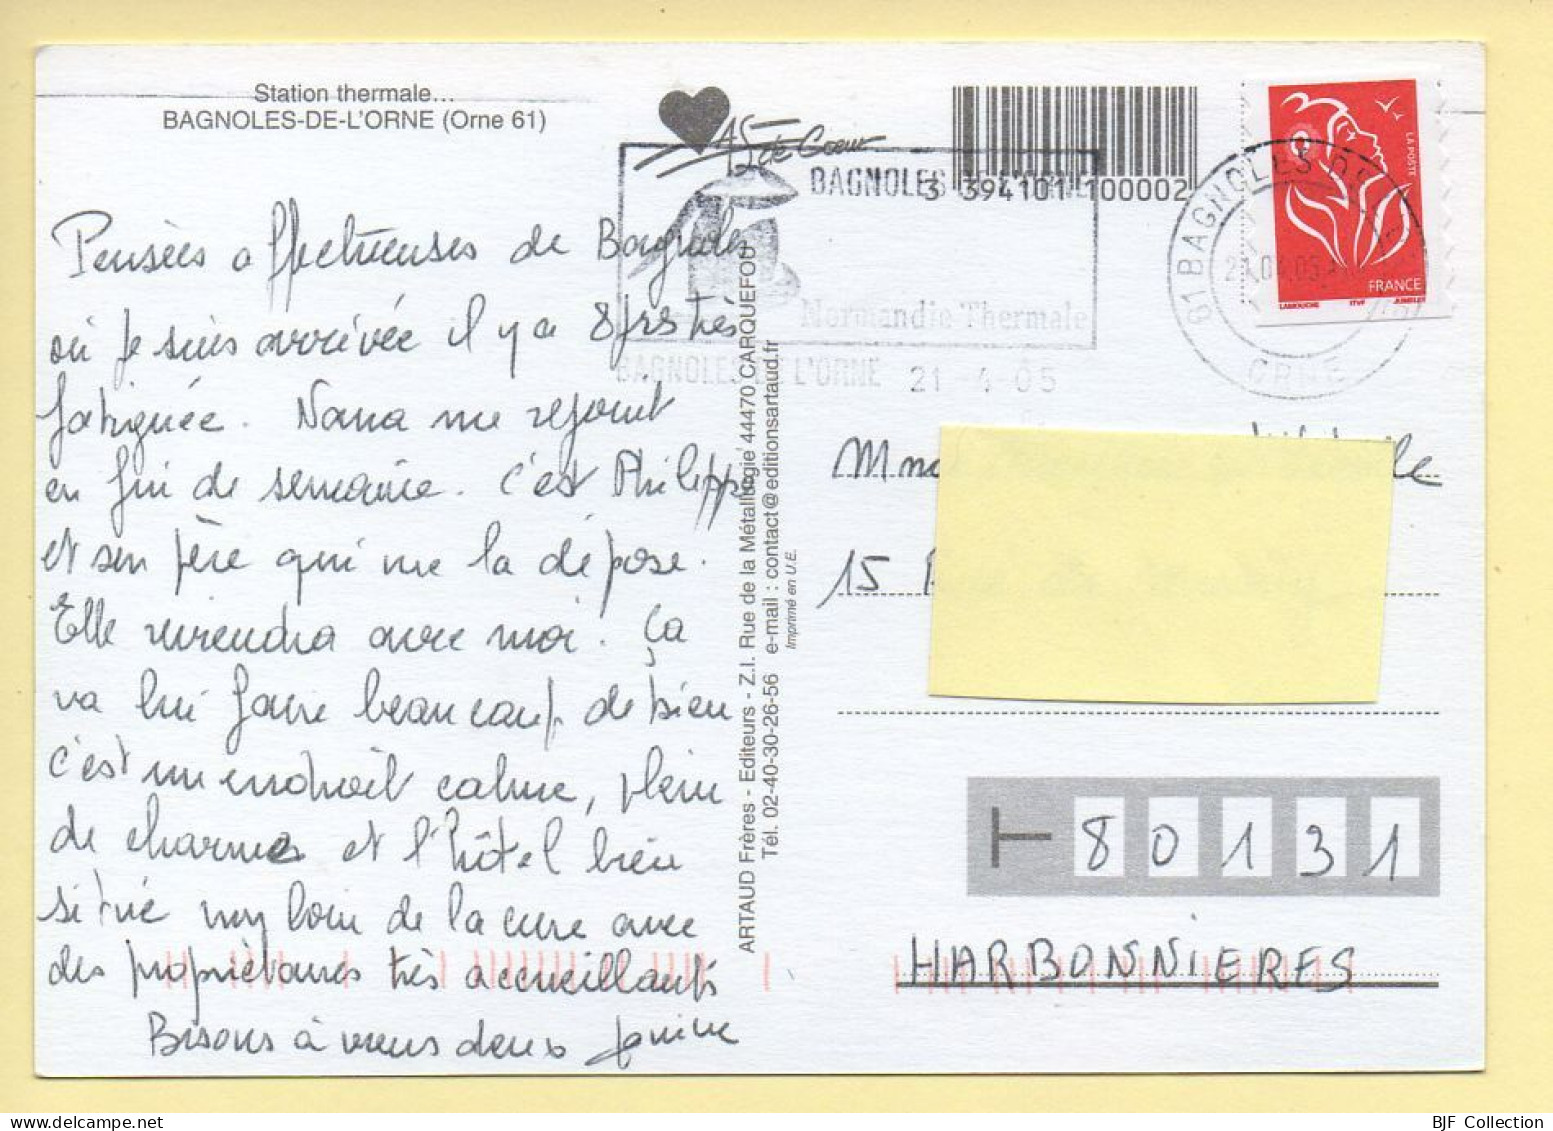 Station thermale...
BAGNOLES-DE-L'ORNE (Orne 61)
Pensées affectueuses de Bagnoles
où je suis arrivée il y a 8 jrs très
fatiguée. Nana me rejoint
en fin de semaine. C'est Philippe
et son père qui me la dépose.
Elle reviendra avec moi. Ça
va lui faire beaucoup de bien
c'est un endroit calme, plein
de charme et l'hôtel bien
situé non loin de la cure avec
des propriétaires très accueillants
Bisous à vous deux Janine
ARTAUD Frères - Editeurs - Z.I. Rue de la Métallurgie 44470 CARQUEFOU
Tél. 02-40-30-26-56 e-mail : contact@editionsartaud.fr
Imprimé en U.E.
As de Coeur
3 394101 100002
BAGNOLES
Normandie Thermale
BAGNOLES DE L'ORNE 21-4-05
61 BAGNOLES
ORNE
LA POSTE
FRANCE
LAMOUCHE ITVF JUMELET
15
80131
HARBONNIERES
BJF Collection